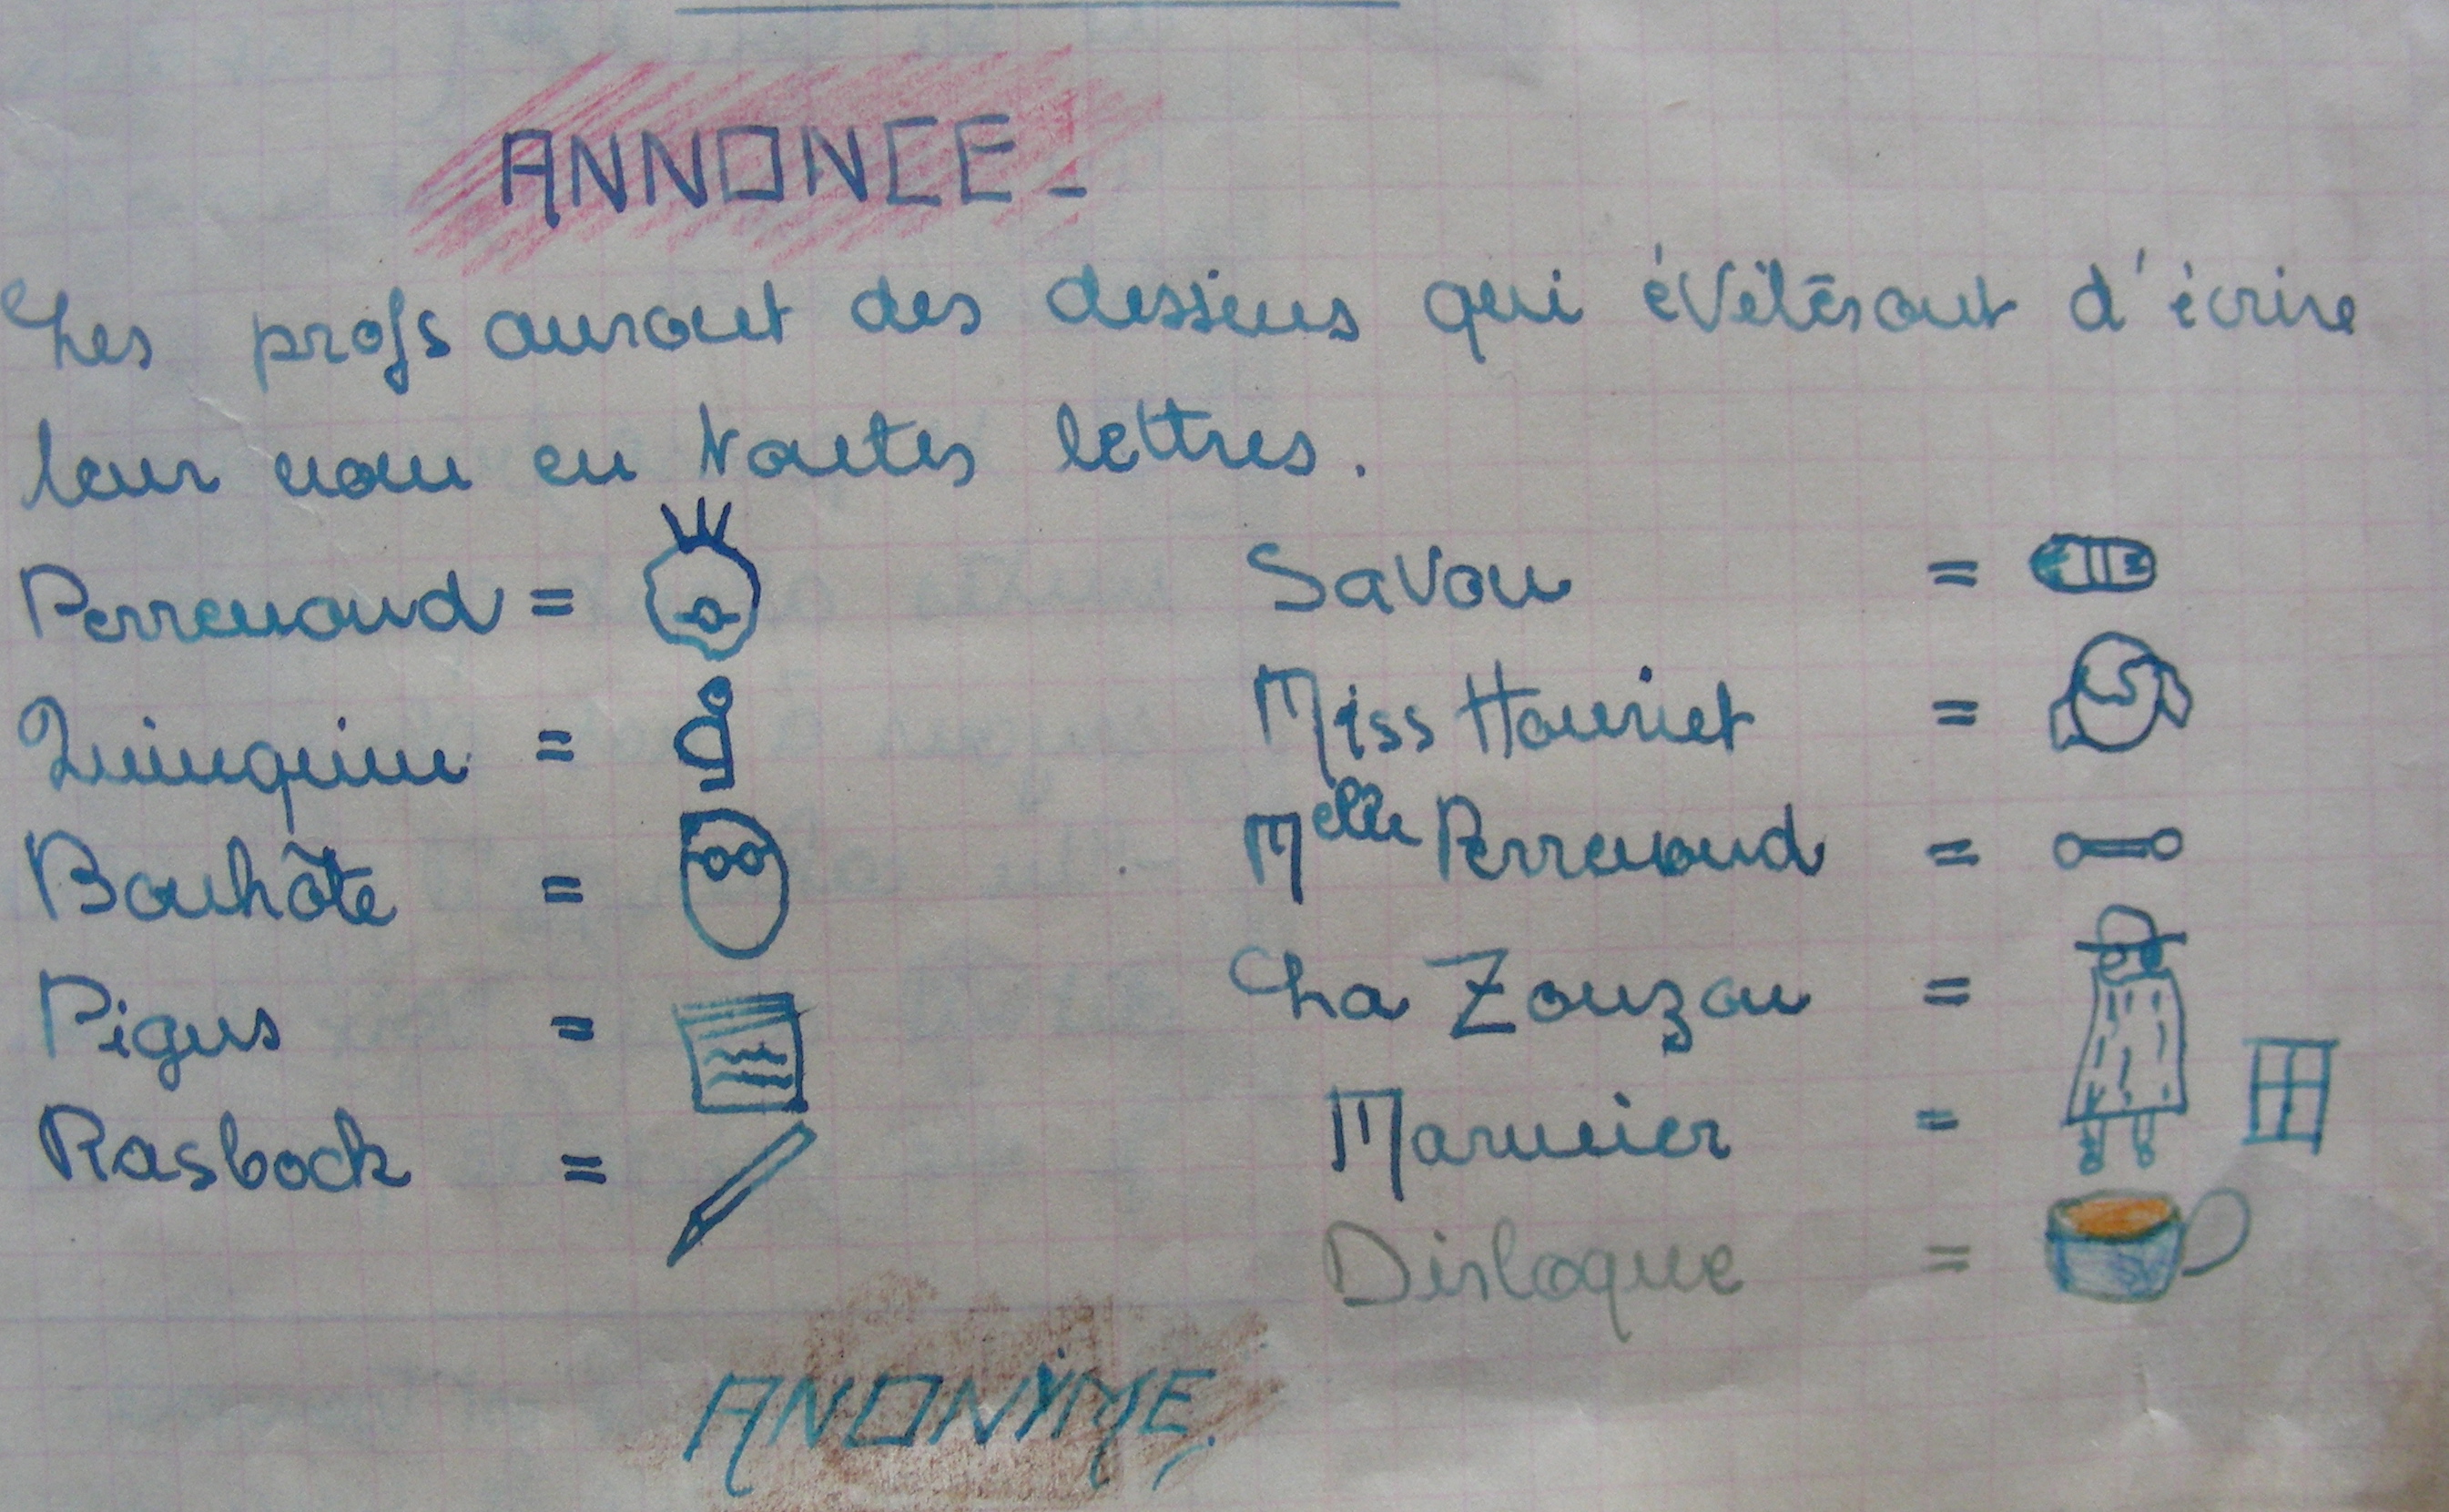 ANNONCE-
Les profs auront des dessins qui éviterons d'écrire
leur nom en toutes lettres.
Perrenoud =
Quinquin =
Bouhôte =
Pigus =
Rasbock =
Savon =
Miss Houriet =
Melle Perrenoud =
La Zouzou =
Marmier =
Disloque =
ANONYME.